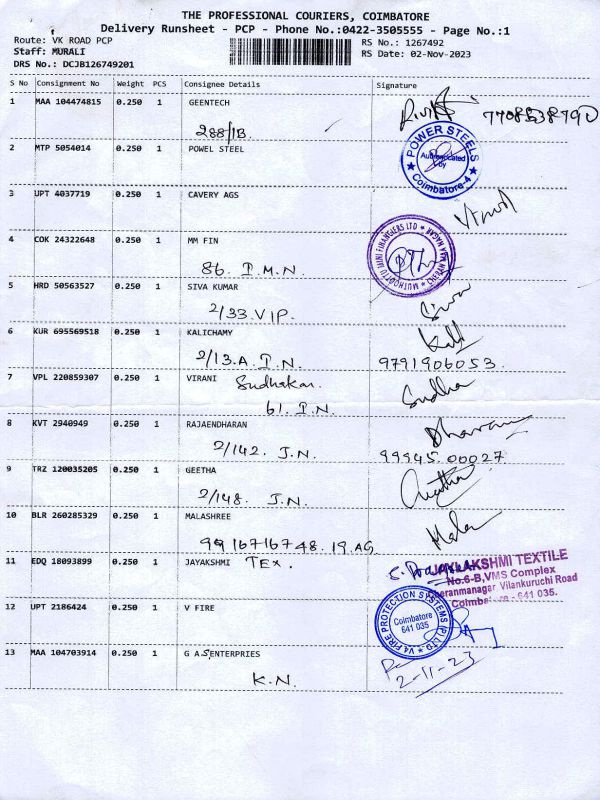 THE PROFESSIONAL COURIERS, COIMBATORE
Delivery Runsheet - PCP - Phone No.:0422-3505555 - Page No.:1
Route: VK ROAD PCP RS No.: 1267492
Staff: MURALI RS Date: 02-Nov-2023
DRS No.: DCJB126749201
S No Consignment No Weight PCS Consignee Details Signature
1 MAA 104474815 0.250 1 GEENTECH
288/1B.
2 MTP 5054014 0.250 1 POWEL STEEL
POWER STEELS
Authenticated
by
Coimbatore-4
3 UPT 4037719 0.250 1 CAVERY AGS
4 COK 24322648 0.250 1 MM FIN
86. I.M.N
5 HRD 50563527 0.250 1 SIVA KUMAR
2/33.VIP. Siva
6 KUR 695569518 0.250 1 KALICHAMY
2/13.A I.N. 9791906053.
7 VPL 220859307 0.250 1 VIRANI Sudhakar. Sudha
61. I.N.
8 KVT 2940949 0.250 1 RAJAENDHARAN
2/142. J.N. 99945.00027
9 TRZ 120035205 0.250 1 GEETHA Geetha
2/148. J.N.
10 BLR 260285329 0.250 1 MALASHREE Mala
9916716748. 19.AG
11 EDQ 18093899 0.250 1 JAYAKSHMI TEX.
JAYLAKSHMI TEXTILE
No.6-B,VMS Complex
Cheranmanagar Vilankuruchi Road
Coimbatore - 641 035.
12 UPT 2186424 0.250 1 V FIRE
V4 FIRE PROTECTION SYSTEMS (P) LTD
Coimbatore
641 035
13 MAA 104703914 0.250 1 G A S ENTERPRIES
K.N. 2-11-23